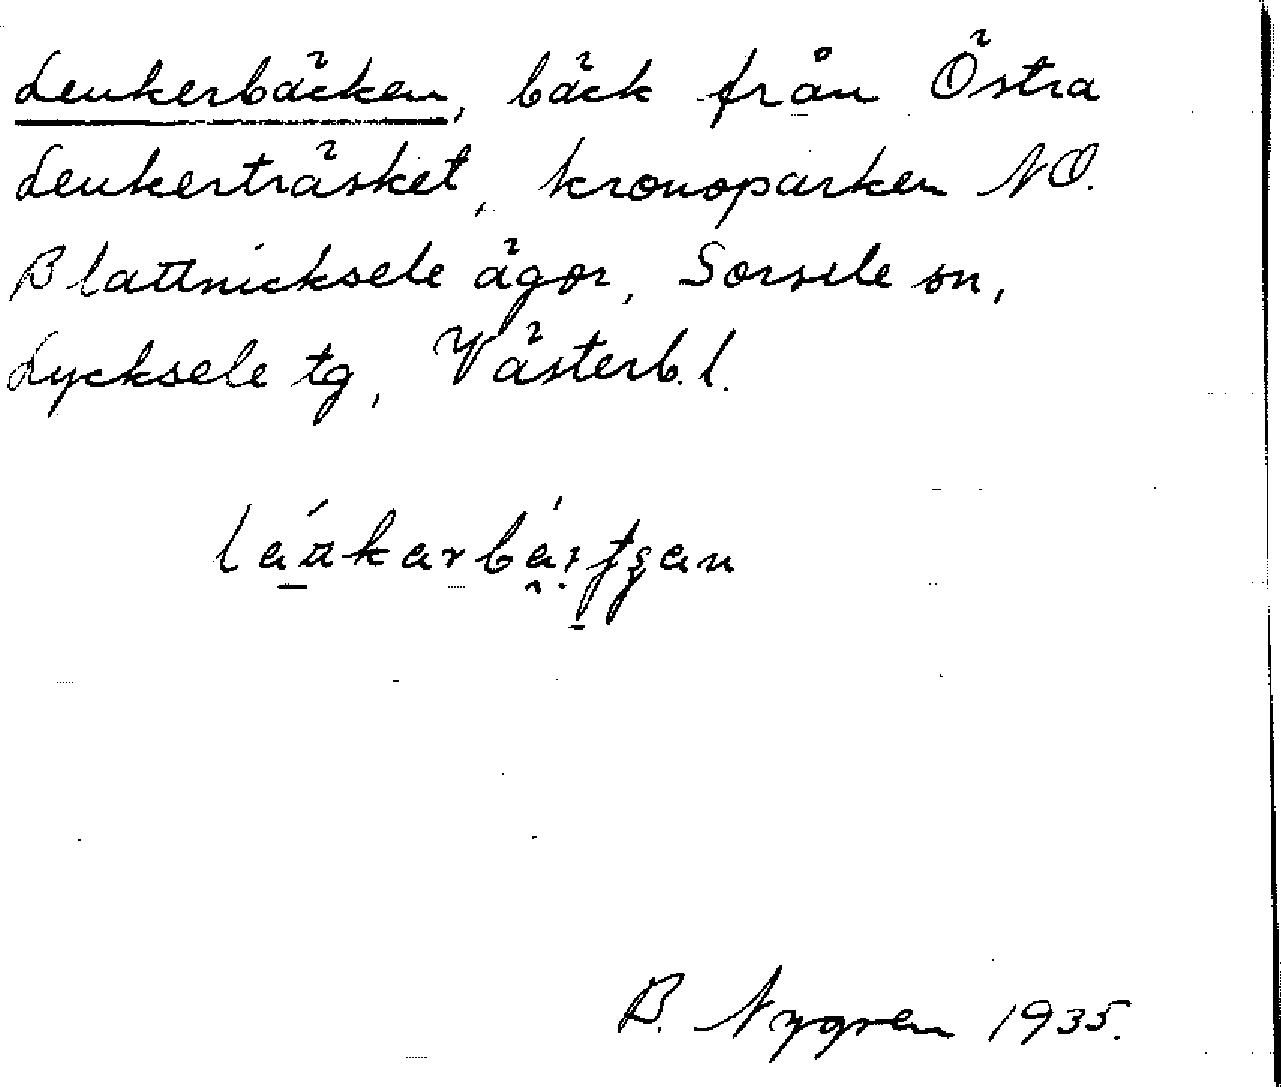 Leukerbäcken, bäck från Östra
Leukerträsket, kronoparken NO.
Blattnicksele ägor, Sorsele sn,
Lycksele tg, Västerb. l.
B. Nygren 1935.